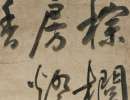 棕櫚
房
香